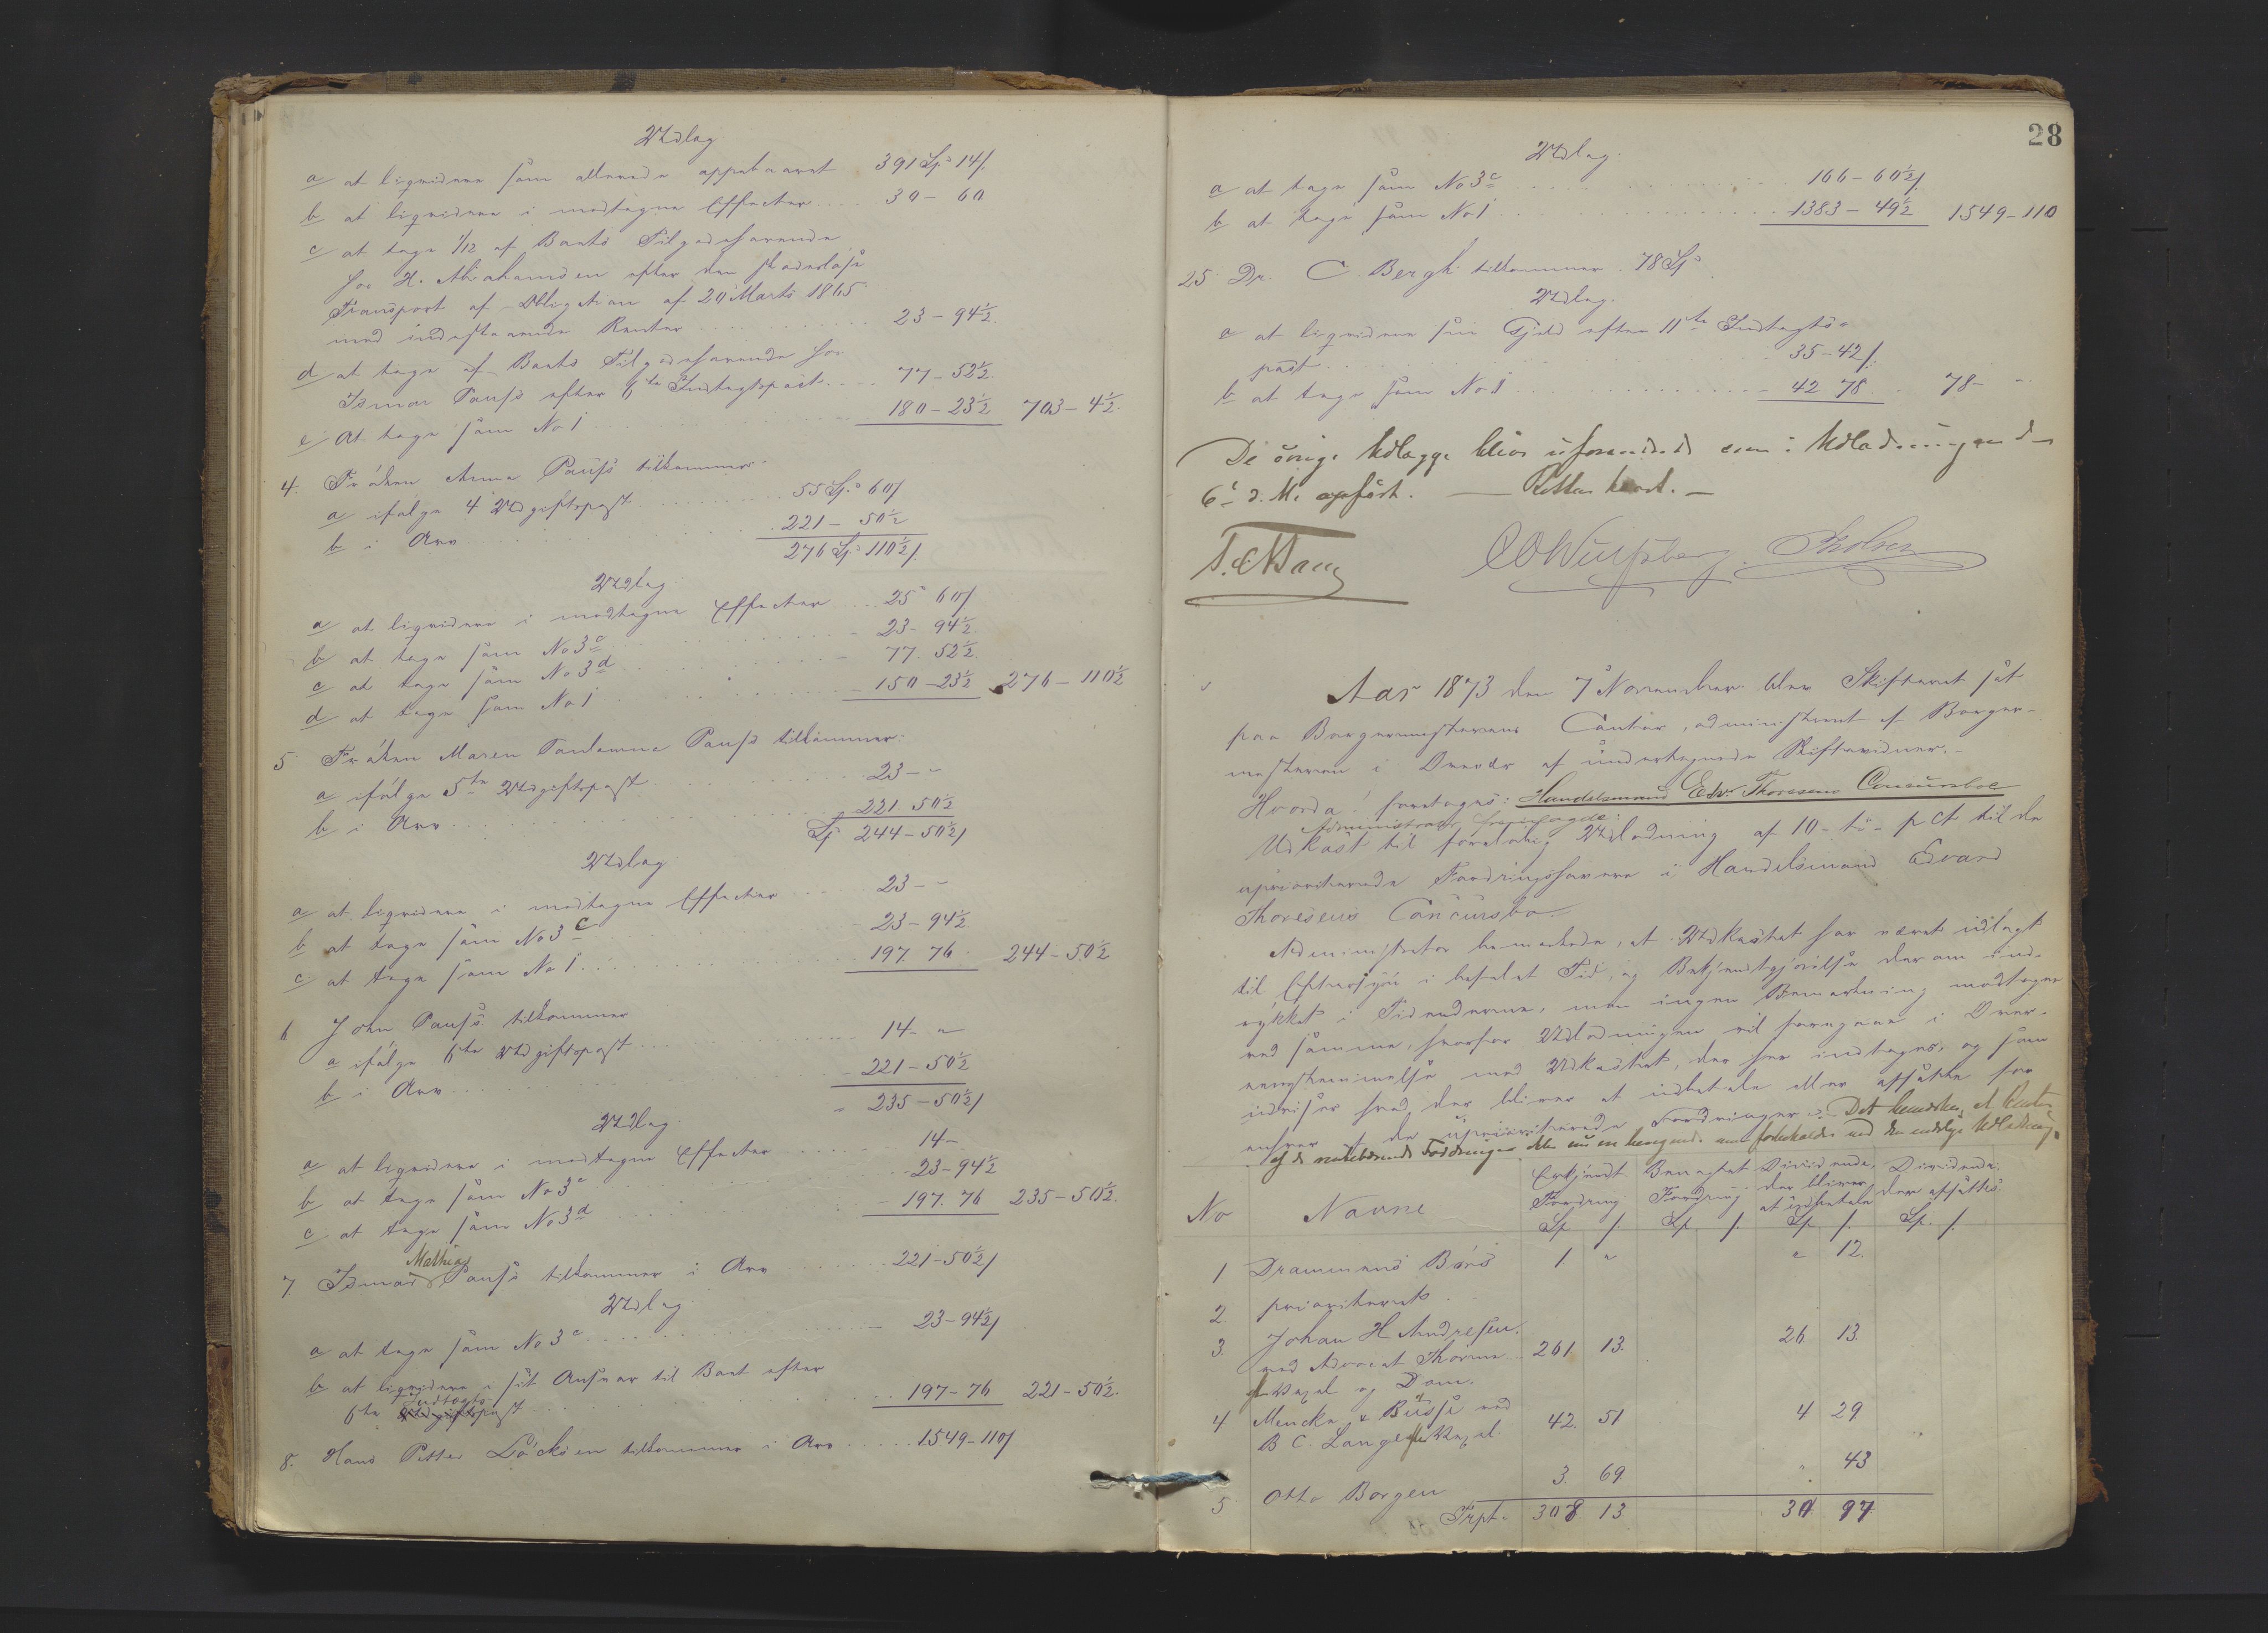 Udlag.
a at liqvidere som allerede oppebaaret 391 Sp 14 s.
b at liqvidere i modtagne Effecter .... 30 - 60
c at tage 1/12 af Boets Tilgodehavende
hos H. Abrahamsen efter den skadesløse
Transport af Obligation af 20 Marts 1865
med indestaaende Renter .... 23 - 94½.
d at tage af Boets Tilgodehavende hos
Ismar Pauss efter 6te Indtægtspost .... 77 - 52½.
e At tage som No 1 .... 180 - 23½ 703 - 4½.
4. Frøken Anna Pauss tilkommer
a ifølge 4 Udgiftspost .... 55 Sp. 60 s
b i Arv .... 221 - 50½
276 Sp 110½ s.
Udlag.
a at liqvidere i modtagne Effecter .... 25 " 60 s
b at tage som No 3 c .... 23 - 94½.
c at tage som No 3 d .... 77. 52½.
d at tage som No 1 .... 150 - 23½ 276 - 110½
5 Frøken Maren Pauss tilkommer:
a ifølge 5te Udgiftspost .... 23 - "
b i Arv .... 221. 50½
Sp 244 - 50½ s
Udlag
a at liqvidere i modtagne Effecter .... 23 - "
b at tage som No 3 c .... 23 - 94½.
c at tage som No 1 .... 197 76. 244 - 50½
6 John Pauss tilkommer
a ifølge 6te Udgiftspost .... 14 - "
b i Arv .... 221 - 50½
" 235 - 50½ s
Udlag.
a at liqvidere i modtagne Effecter .... 14 -
b at tage som No 3 c .... 23 - 94½
c at tage som No 3 d .... 197. 76 235 - 50½.
Mathias
7 Ismar Pauss tilkommer i Arv .... 221 - 50½ s
Udlag
a at tage som No 3 c .... 23 - 94½ s
b at liqvidere i sit Ansvar til Boet efter
Indtægts
6te Udgiftspost .... 197 - 76 221 - 50½.
8. Hans Petter Løcksen tilkommer i Arv .... 1549 - 110 s
28
Udlag.
a at tage som No 3 c .... 166 - 60½ s.
b at tage som No 1 .... 1383 - 49½ 1549 - 110
25 Dr. C. Bergh tilkommer 78 Sp
Udlag.
a at liqvidere sin Gjeld efter 11te Indtægts-
post .... 35 - 42 s.
b at tage som No 1 .... 42 78 78 - "
De øvrige Udlægge bliver uforandrede som i Udlodningen
6 d. M. opført. — Retten hævet. —
Aar 1873 den 7 November blev Skifteret sat
paa Borgermesterens Contor, administreret af Borger-
mesteren i Overvær af undertegnede Skiftevidner. -
Hvorda foretoges: Handelsmand Edv. Thoresens Concursboe
Administrator fremlagde:
Udkast til foreløbig Udlodning af 10 - ti - pCt til de
uprioriterede Fordringshavere i Handelsmand Edvard
Thoresens Concursbo
Administrator bemærkede, at Udkastet har været udlagt
til Eftersyn i befalet Tid, og Bekjendtgjørelse derom ind-
rykket i Tidenderne, men ingen Bemærkning modtaget
ved samme, hvorfor Udlodningen vil foregaae i Over-
eensstemmelse med Udkastet, der her indtages, og som
udviser hvad der bliver at udbetale eller afsætte for
enhver af de uprioriterede Fordringer. Det bemærkes, at Renter
af de rentebærende Fordringer forbeholdes ved den endelige Udlodning.
No Navne Erkjendt Fordring Sp s. Benægtet Fordring Sp s. Dividende, der bliver at udbetale Sp s. Dividende, der afsættes Sp. s.
1 Drammens Børs 1 " " 12.
2. prioriteret.
3. Johan H. Andresen,
ved Advocat Thorne 261. 13. 26 13.
4 Mencke & Busse ved
B C. Lange 42. 51 4 29
5 Otto Borgen 3. 69. " 43
Trpt. 308 13 30. 97